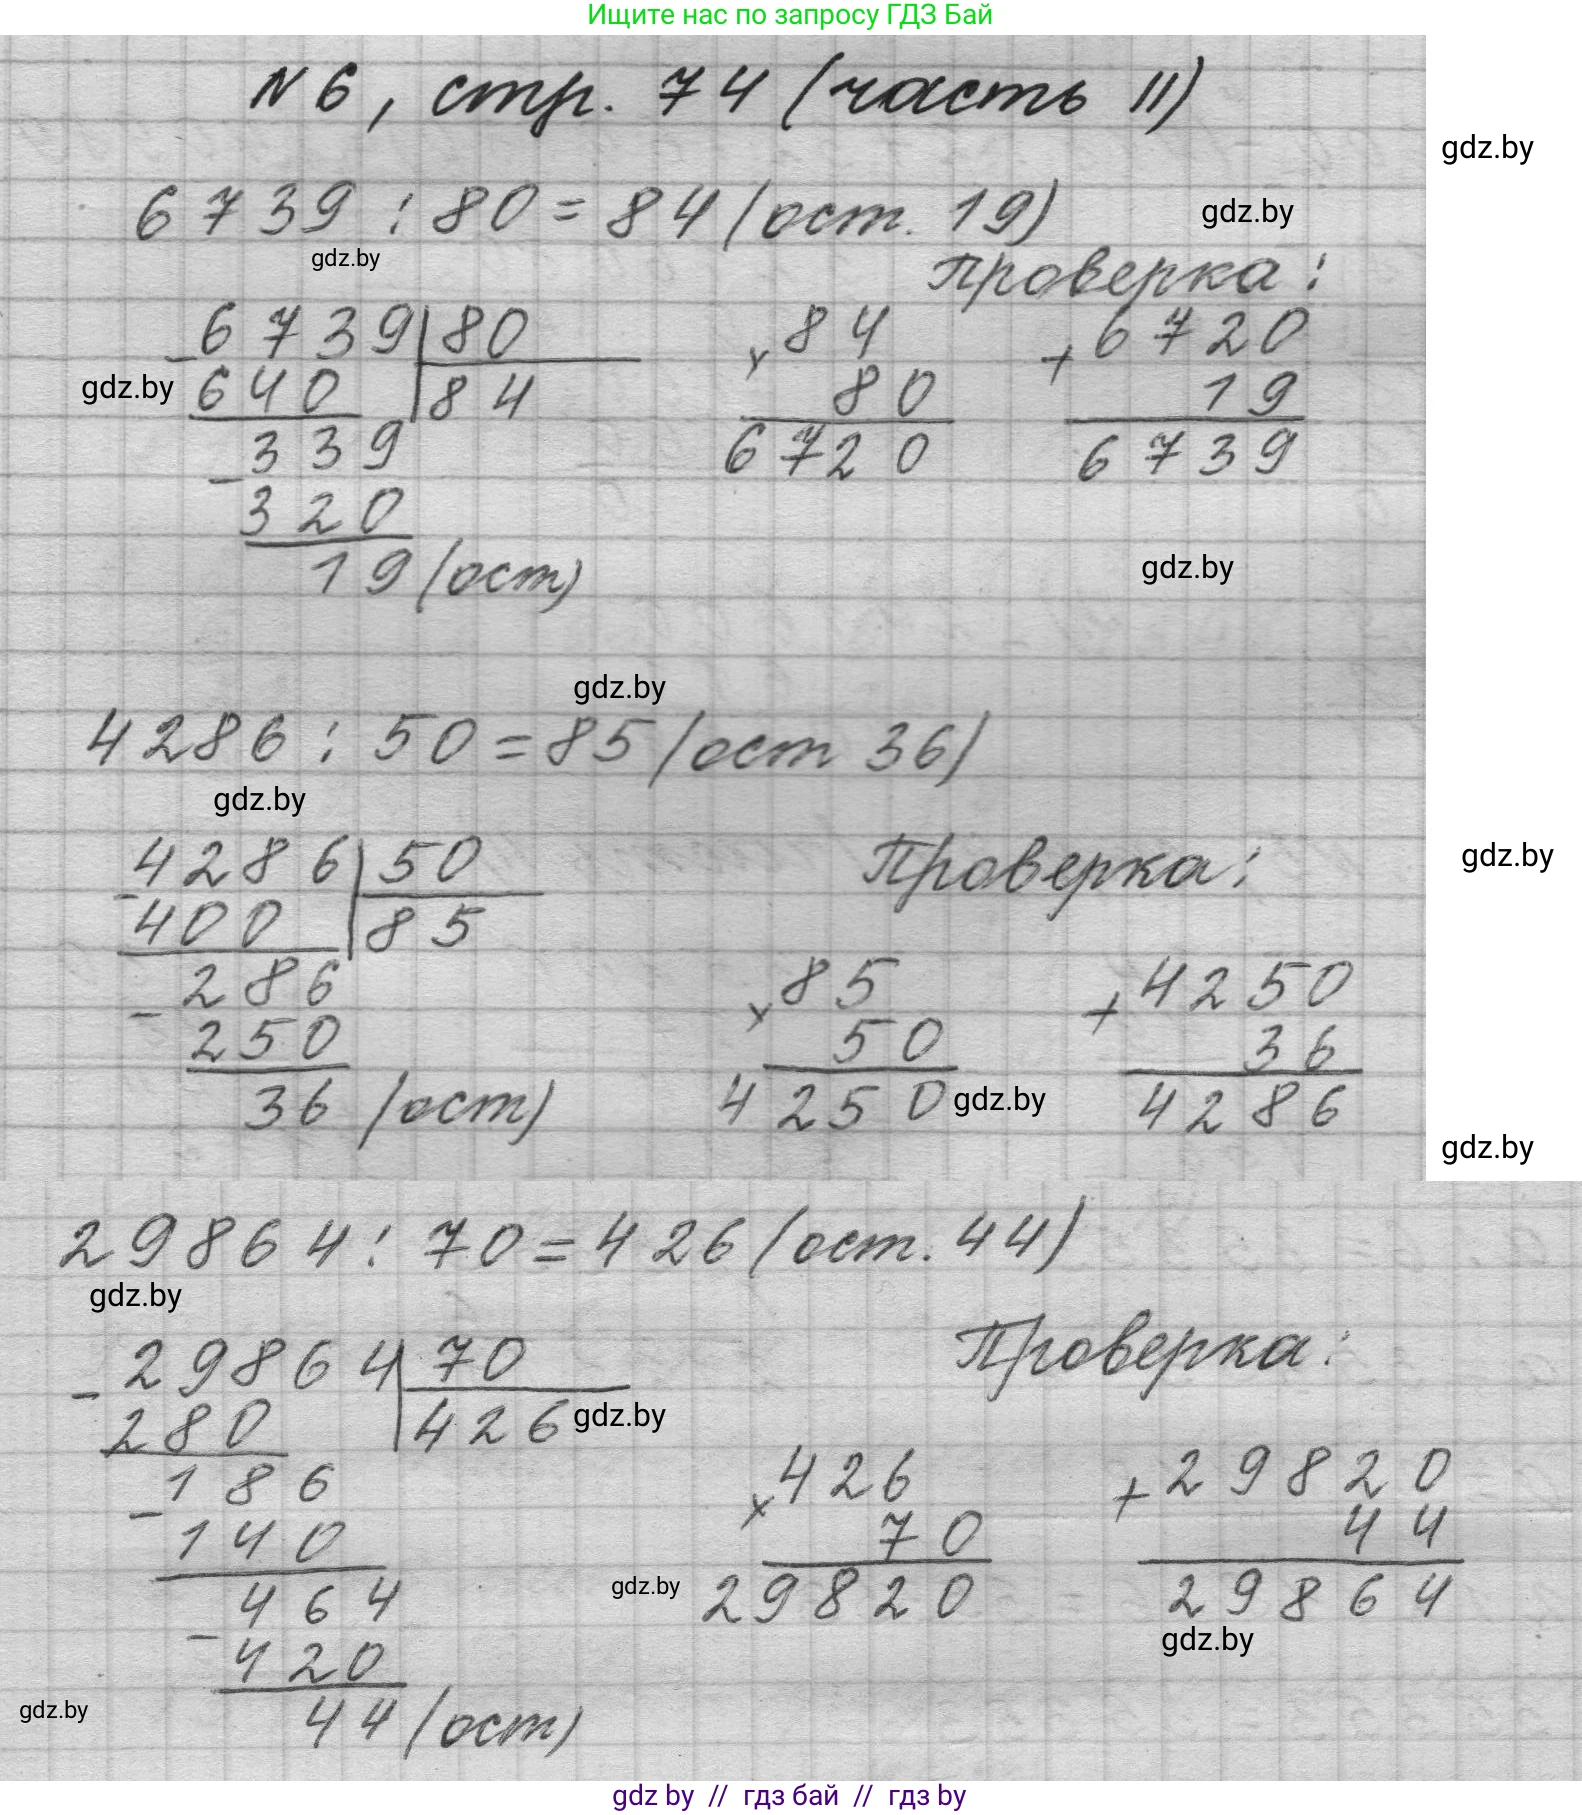 Ищите нас по запросу ГДЗ Бай
N6, стр. 74 (часть II)
gdz.by
6739 : 80 = 84 (ост. 19)
gdz.by
gdz.by
Проверка:
- 6739 | 80
640 | 84
gdz.by
339
- 320
19 (ост)
84
x 80
6720
+ 6720
19
6739
gdz.by
gdz.by
4286 : 50 = 85 (ост 36)
gdz.by
Проверка:
gdz.by
- 4286 | 50
400 | 85
- 286
250
36 (ост)
85
x 50
4250
gdz.by
+ 4250
36
4286
gdz.by
29864 : 70 = 426 (ост. 44)
gdz.by
Проверка:
- 29864 | 70
280 | 426
gdz.by
- 186
140
- 464
420
44 (ост)
426
x 70
29820
gdz.by
+ 29820
44
29864
gdz.by
gdz.by
gdz by // гдз бай // гдз by